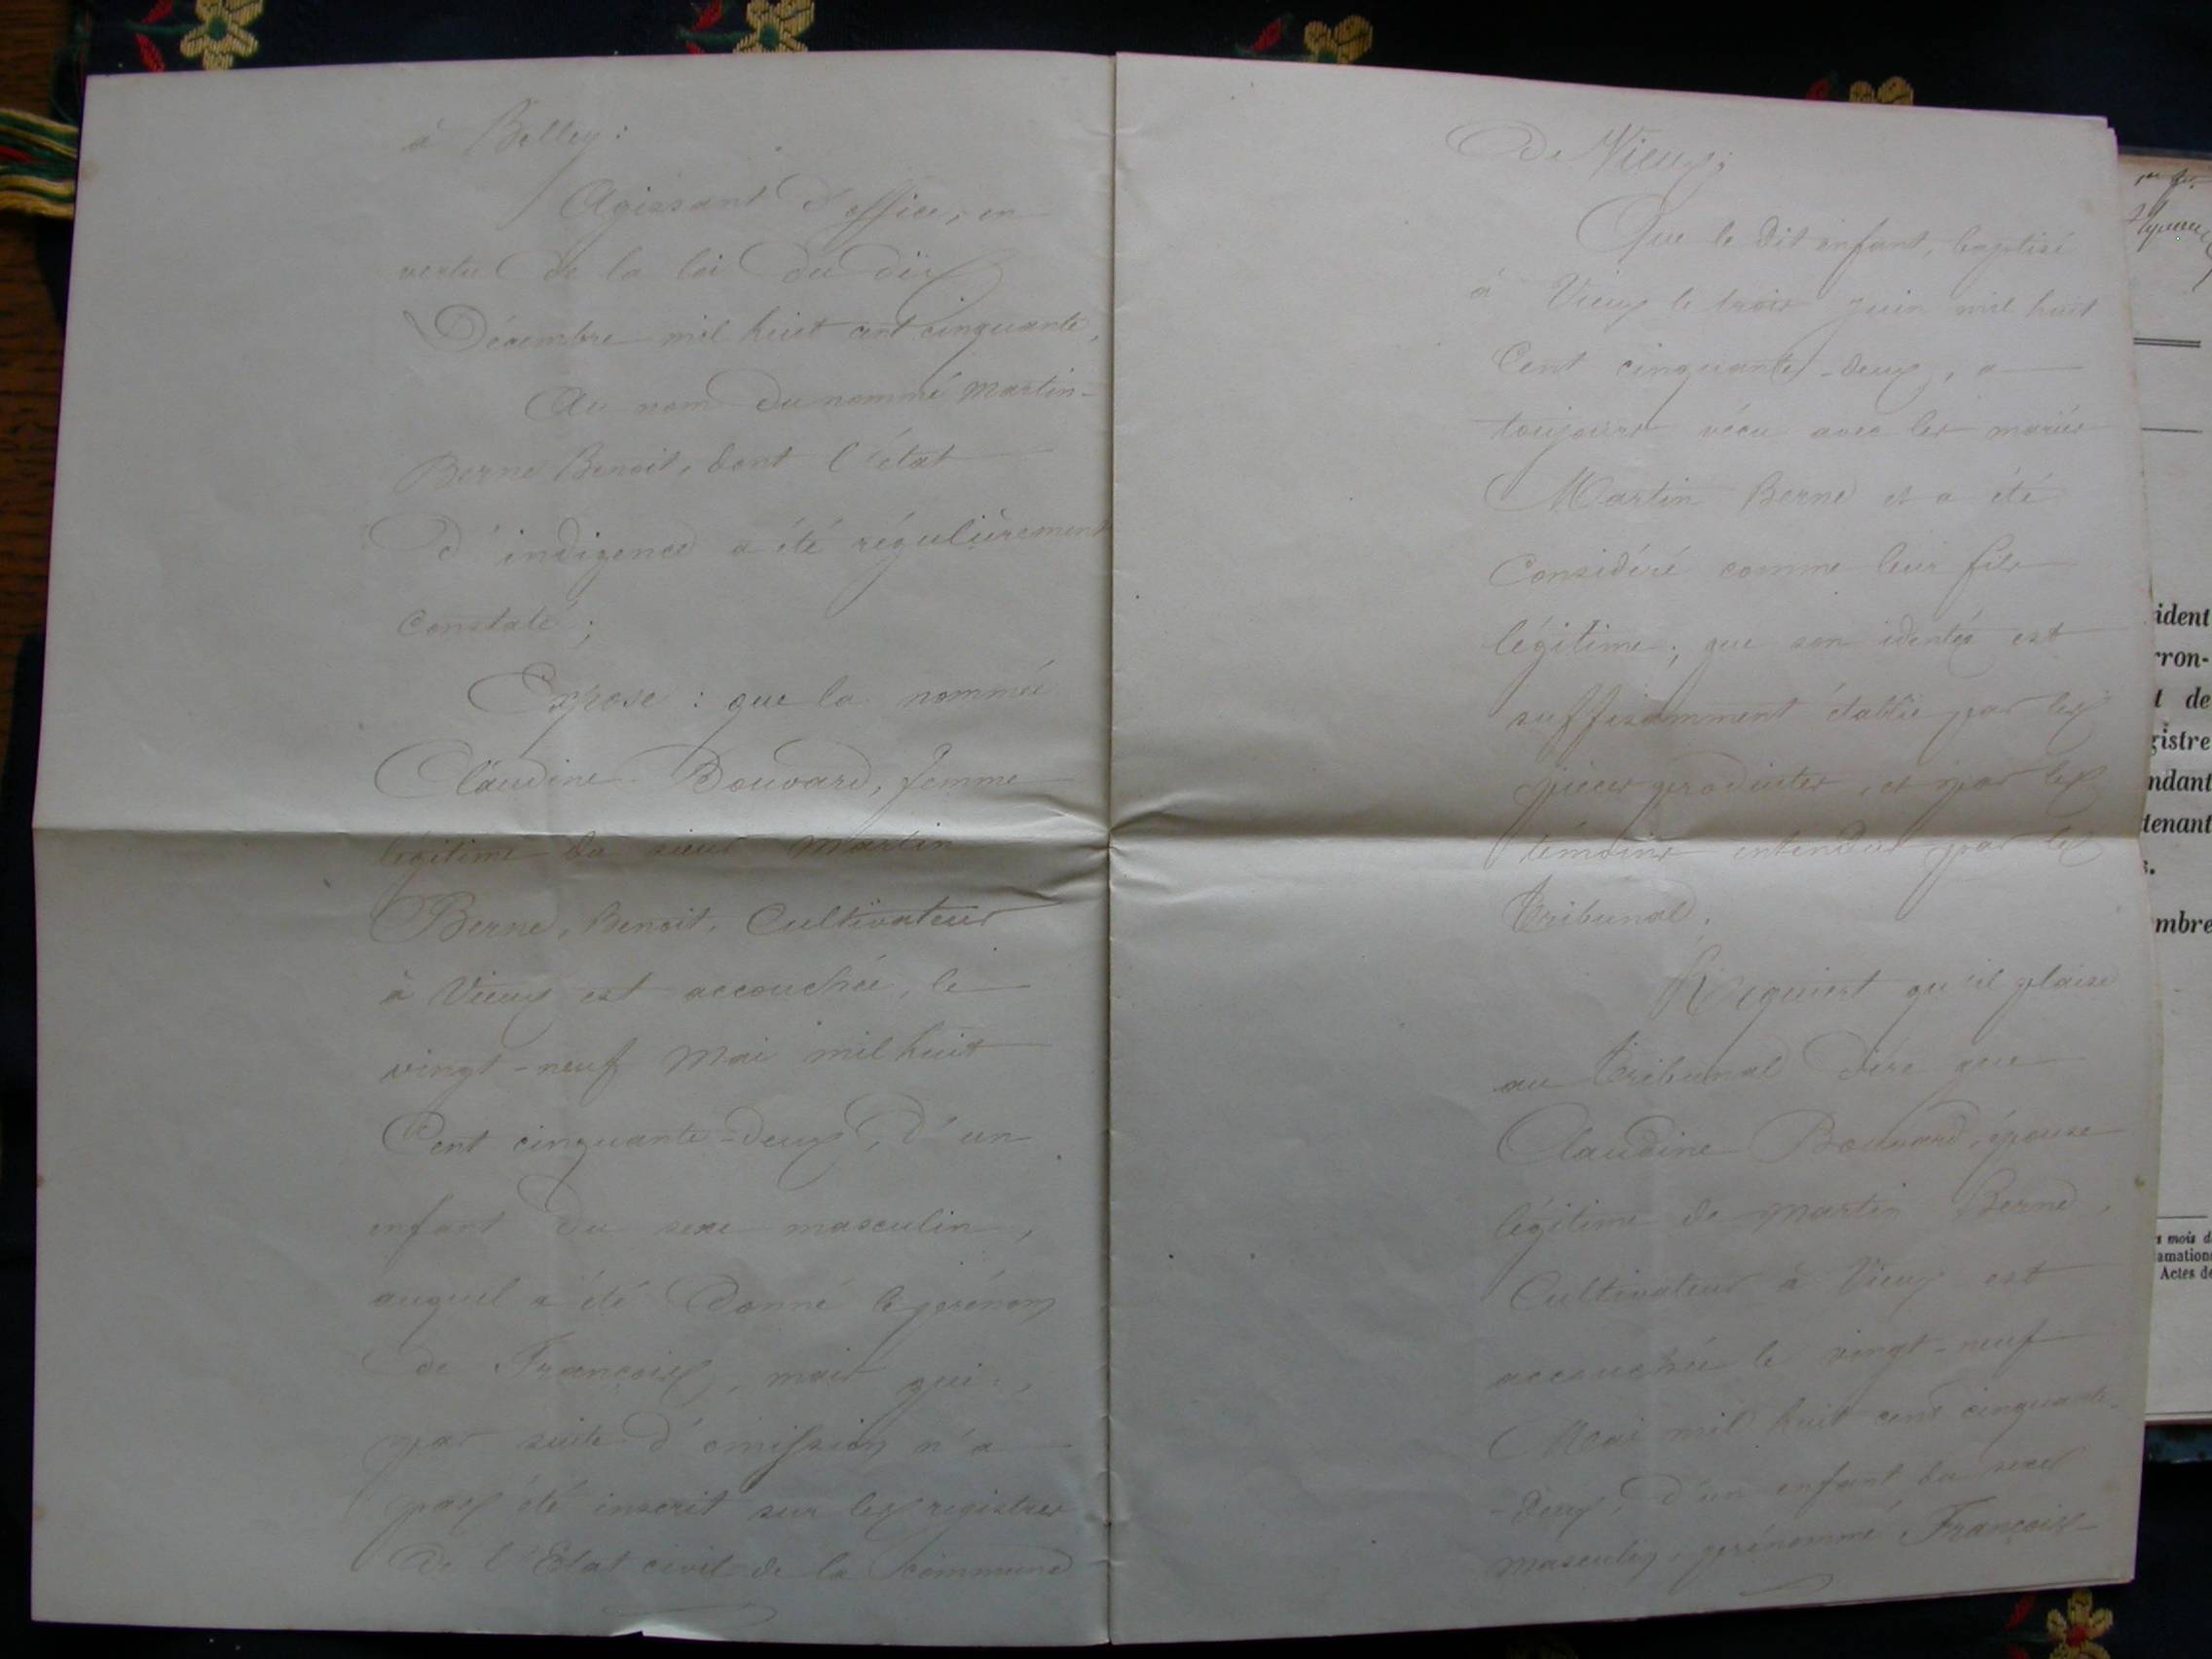 à Belley :
Agissant d'office, en
vertu de la loi du dix
Décembre mil huit cent cinquante,
Au nom du nommé Martin-
Berne Benoit, dont l'état
d'indigence a été régulièrement
constaté ;
Expose : que la nommée
Claudine Bouvard, femme
légitime du sieur Martin
Berne, Benoit, Cultivateur
à Vieux est accouchée, le
vingt-neuf Mai mil huit
Cent cinquante-deux, d'un
enfant du sexe masculin,
auquel a été donné le prénom
de François, mais qui,
par suite d'omission n'a
pas été inscrit sur les registres
de l'Etat civil de la commune
de Vieux ;
Que le dit enfant, baptisé
à Vieux le trois Juin mil huit
Cent cinquante-deux, a
toujours vécu avec les mariés
Martin Berne et a été
Considéré comme leur fils
légitime ; que son identité est
suffisamment établie par les
pièces produites, et par les
témoins entendus par le
Tribunal.
Requiert qu'il plaise
au Tribunal dire que
Claudine Bouvard, épouse
légitime de Martin Berne,
Cultivateur à Vieux est
accouchée le vingt-neuf
Mai mil huit cent cinquante-
-deux, d'un enfant du sexe
masculin, prénommé François
ident
rron-
t de
gistre
ndant
tenant
s.
mbre
s mois d
amation
Actes de